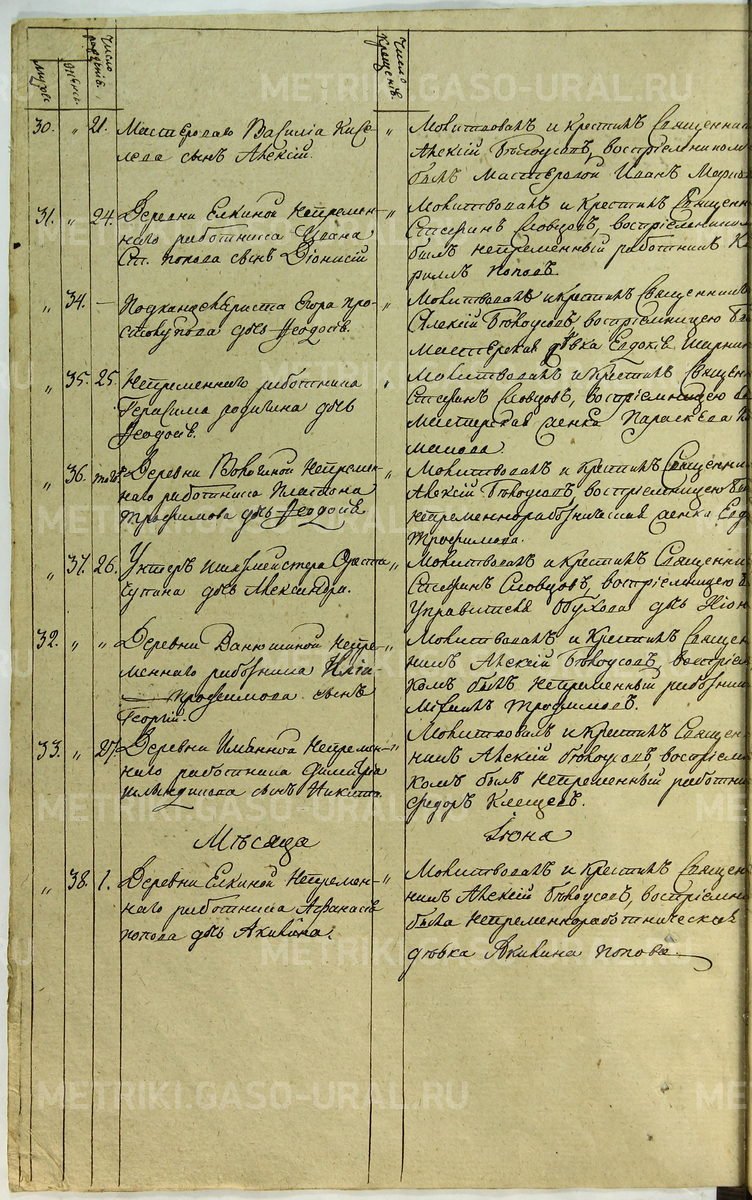 мужск:
женск:
Число рождені:
Число крещені:
30. „ 21. Мастероваго Василія Кисе-
лева сынъ Алексій.
„ Молитвовалъ и крестилъ Священник
Алексій Бѣлоусовъ, воспріемником
былъ Мастеровой Иванъ
31. „ 24. Деревни Елкиной Непремен-
наго работника Ивана
Ст. попова сынъ Діонисій
„ Молитвовалъ и Крестилъ Священн
Стефанъ Словцовъ, воспріемником
былъ непременный работникъ Ки
рилъ Поповъ.
„ 34. — Подканцеляриста Егора про-
стокупова дчь Ѳеодосія.
„ Молитвовалъ и крестилъ Священник
Алексій Бѣлоусовъ, воспріемницею бы
Мастерская дѣвка Евдокія
„ 35. 25. Непременнаго работника
Герасима родигина дчь
Ѳеодосія.
„ Молитвовалъ и Крестилъ Священ
Стефанъ Словцовъ, воспріемницею б
мастерская женка Параскева
„ 36. тогож Деревни Непремен-
наго работника Платона
Трофимова дчь Ѳеодосія
„ Молитвовалъ и Крестилъ Священни
Алексій Бѣлоусовъ, воспріемницею бы
непременноработническая женка Евд
Трофимова.
„ 37. 26. Унтеръ шихтмейстера
Чупина дчь Александра.
„ Молитвовалъ и крестилъ Священни
Стефанъ Словцовъ, воспріемницею б
Управителя Обухова дчь
32. „ „ Деревни Ванюшиной Непре-
меннаго работника Иліи
Трофимова сынъ
Георгій.
„ Молитвовалъ и Крестилъ Священ
никъ Алексій Бѣлоусовъ, воспріем
комъ былъ Непременный работник
Трофимовъ.
33. „ 27. Деревни Непремен-
наго работника Димитрія
сынъ Никита
„ Молитвовалъ и крестилъ Священ
никъ Алексій Бѣлоусовъ, воспріем
комъ былъ Непременный работни
Федоръ Клещевъ.
Мѣсяца Іюня
„ 38. 1. Деревни Елкиной Непремен-
наго работника Аѳанасія
попова дчь Акилина.
„ Молитвовалъ и Крестилъ Священ
никъ Алексій Бѣлоусовъ, воспріемни
была Непременноработническая
дѣвка Акилина Попова.
METRIKI.GASO-URAL.RU